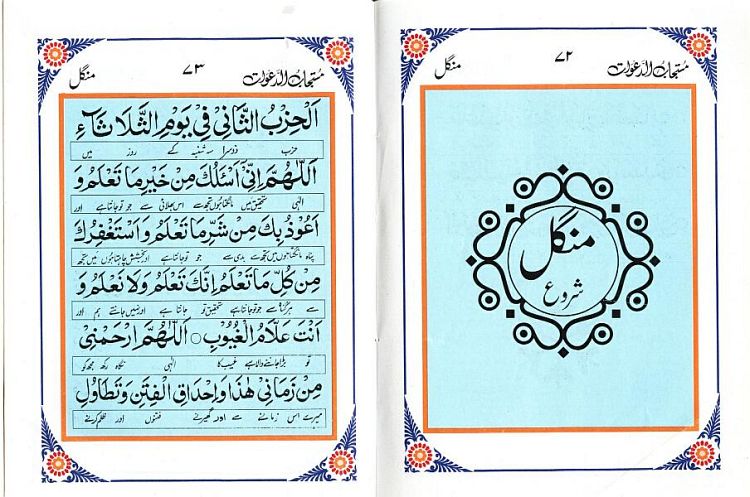 مستجاب الدعوات
۷۲
منگل
منگل
شروع
مستجاب الدعوات
۷۳
منگل
اَلْحِزْبُ الثَّانِيْ فِيْ يَوْمِ الثَّلَاثَاءِ
حزب دوسرا سہ شنبہ کے روز میں
اَللّٰهُمَّ اِنِّيْ اَسْئَلُكَ مِنْ خَيْرِ مَا تَعْلَمُ وَ
الٰہی تحقیق میں مانگتا ہوں تجھ سے اس بھلائی سے جو تو جانتا ہے اور
اَعُوْذُ بِكَ مِنْ شَرِّ مَا تَعْلَمُ وَ اسْتَغْفِرُكَ
پناہ مانگتا ہوں میں تجھ سے بدی سے جو تو جانتا ہے اور بخشش چاہتا ہوں میں تجھ
مِنْ كُلِّ مَا تَعْلَمُ اِنَّكَ تَعْلَمُ وَلَا نَعْلَمُ وَ
سے ہر گناہ سے جو تو جانتا ہے تحقیق تو جانتا ہے اور نہیں جانتے ہم اور
اَنْتَ عَلَّامُ الْغُيُوْبِ ○ اَللّٰهُمَّ ارْحَمْنِيْ
تو بڑا جاننے والا ہے غیب کا الٰہی نگاہ رکھ مجھ کو
مِنْ زَمَانِيْ هٰذَا وَ اِحْدَاقِ الْفِتَنِ وَ تَطَاوُلِ
میرے اس زمانے سے اور گھیرنے فتنوں اور ظلم کرنے